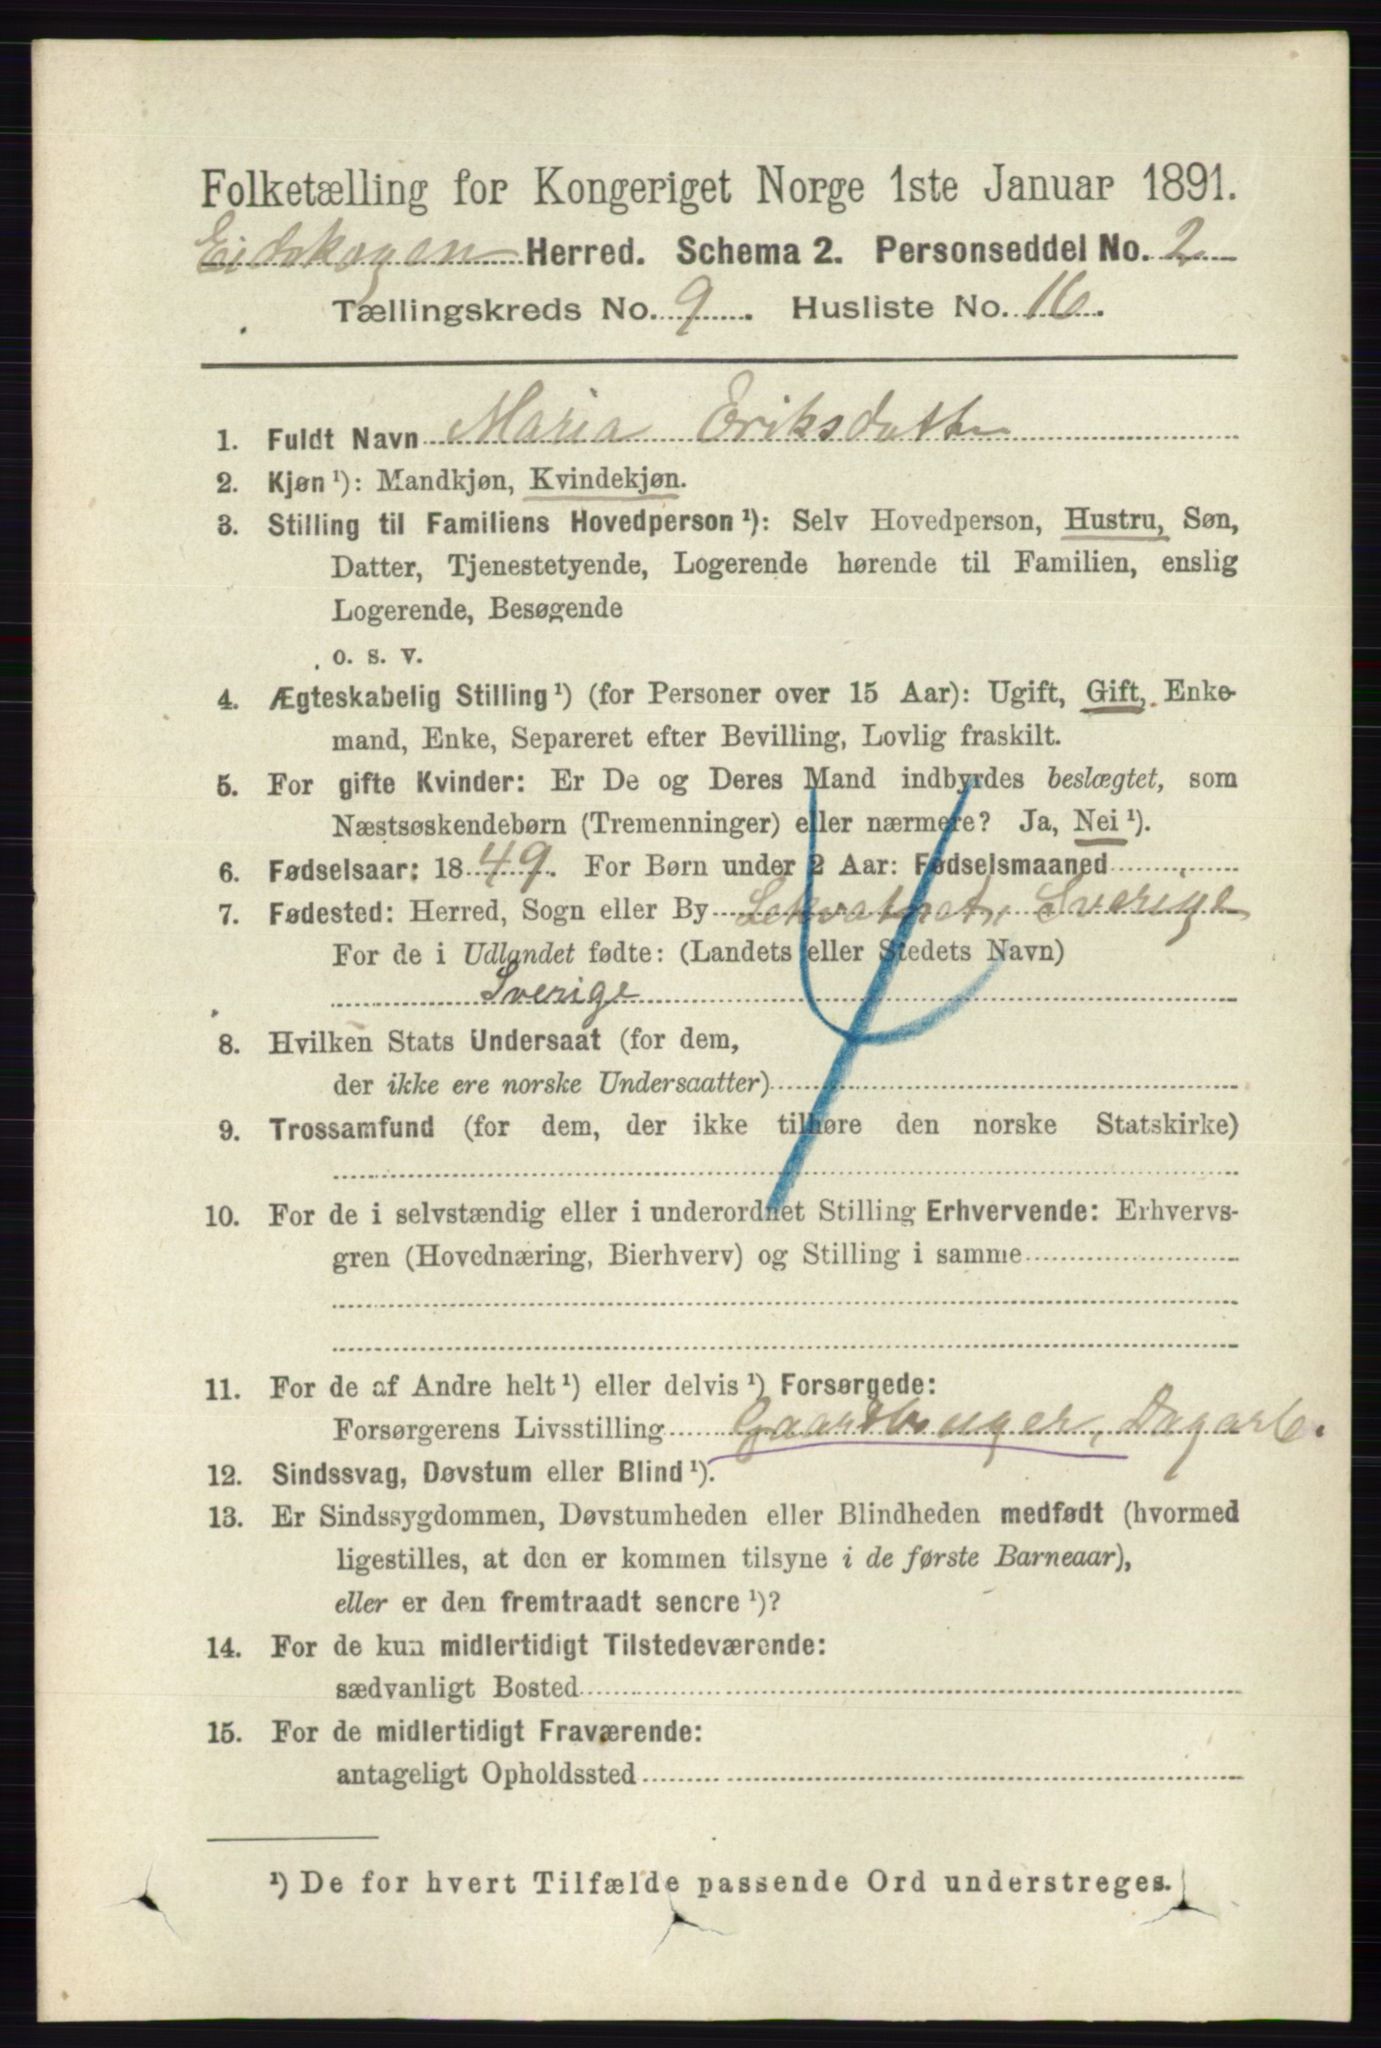 Folketælling for Kongeriget Norge 1ste Januar 1891.
Eidskogen Herred. Schema 2. Personseddel No. 2
Tællingskreds No. 9. Husliste No. 16.
1. Fuldt Navn Maria Eriksdatter
2. Kjøn ¹): Mandkjøn, Kvindekjøn.
3. Stilling til Familiens Hovedperson ¹): Selv Hovedperson, Hustru, Søn,
Datter, Tjenestetyende, Logerende hørende til Familien, enslig
Logerende, Besøgende
o. s. v.
4. Ægteskabelig Stilling ¹) (for Personer over 15 Aar): Ugift, Gift, Enke-
mand, Enke, Separeret efter Bevilling, Lovlig fraskilt.
5. For gifte Kvinder: Er De og Deres Mand indbyrdes beslægtet, som
Næstsøskendebørn (Tremenninger) eller nærmere? Ja, Nei ¹).
6. Fødselsaar: 1849. For Børn under 2 Aar: Fødselsmaaned
7. Fødested: Herred, Sogn eller By Lekvatnet, Sverige
For de i Udlandet fødte: (Landets eller Stedets Navn)
Sverige
8. Hvilken Stats Undersaat (for dem,
der ikke ere norske Undersaatter)
9. Trossamfund (for dem, der ikke tilhøre den norske Statskirke)
10. For de i selvstændig eller i underordnet Stilling Erhvervende: Erhvervs-
gren (Hovednæring, Bierhverv) og Stilling i samme
11. For de af Andre helt ¹) eller delvis ¹) Forsørgede:
Forsørgerens Livsstilling Gaardbruger, Dagarb.
12. Sindssvag, Døvstum eller Blind ¹).
13. Er Sindssygdommen, Døvstumheden eller Blindheden medfødt (hvormed
ligestilles, at den er kommen tilsyne i de første Barneaar),
eller er den fremtraadt senere ¹)?
14. For de kun midlertidigt Tilstedeværende:
sædvanligt Bosted
15. For de midlertidigt Fraværende:
antageligt Opholdssted
¹) De for hvert Tilfælde passende Ord understreges.